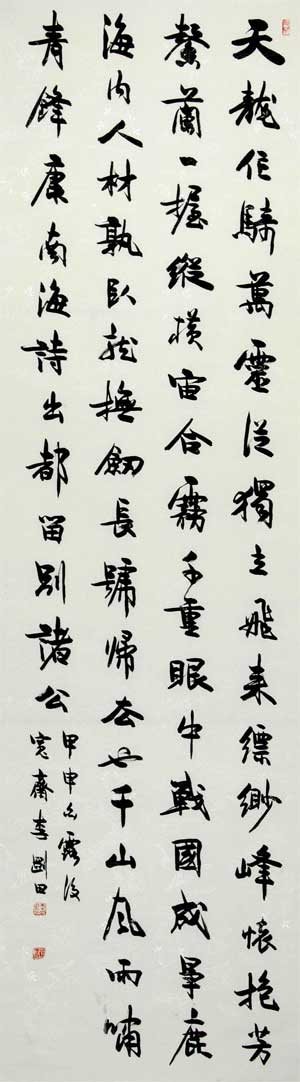 天龍作騎萬靈從獨立飛來縹緲峰懷抱芳
馨蘭一握縱橫宙合霧千重眼中戰國成鹿
海内人材孰臥龍撫劔長號歸去也千山風雨嘯
青鋒康南海詩出都留別諸公
甲申白露後
寬齋李剛田